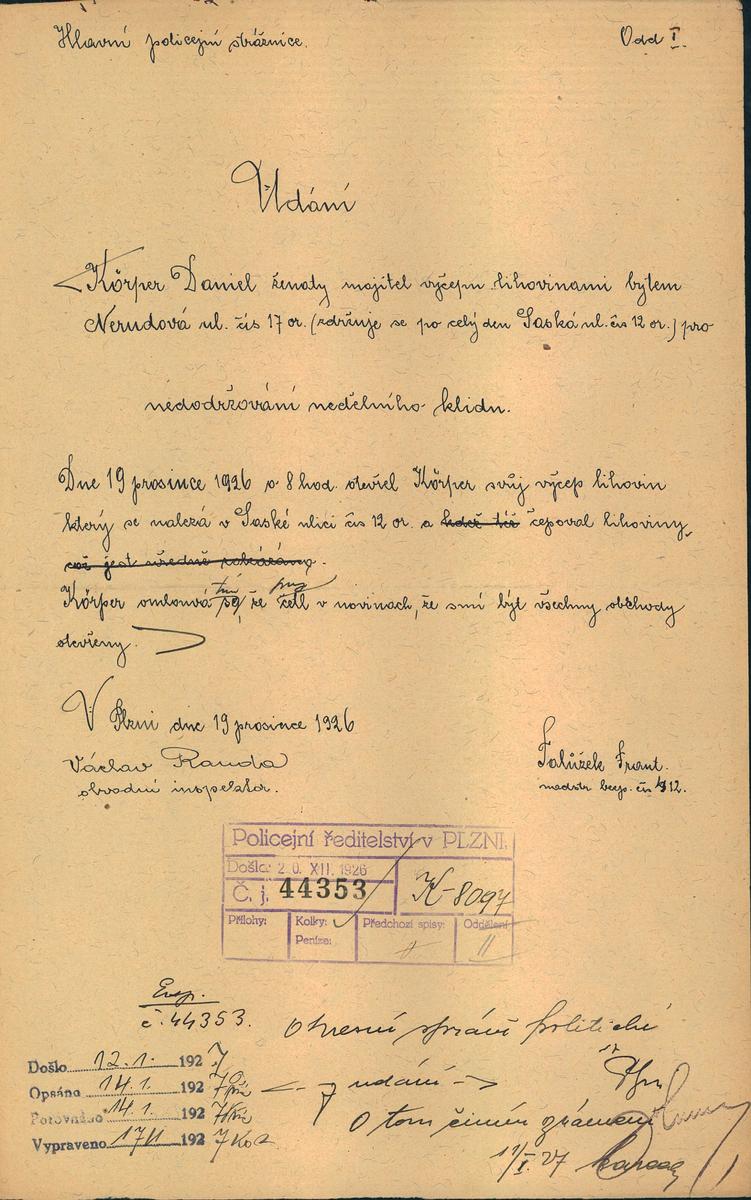 Hlavní policejní strážnice. Odd I.
Udání
Körper Daniel ženatý majitel výčepu lihovinami bytem
Nerudová ul. čís 17 or. (zdržuje se po celý den Saská ul. čís 12 or.) pro
nedodržování nedělního klidu.
Dne 19 prosince 1926 o 8 hod. otevřel Körper svůj výčep lihovin
který se nalezá v Saské ulici čís 12 or. a kdež též čepoval lihoviny,
což jest úředně zakázáno.
Körper omlouvá se, že četl v novinach, že smí být všechny obchody
otevřeny.
V Plzni dne 19 prosince 1926
Václav Randa
obvodní inspektor.
Frant.
čís 412.
Policejní ředitelství v PLZNI.
Došlo: 20. XII. 1926
Č. j. 44353
K-8097
Přílohy:
Kolky:
Peníze:
Předchozí spisy:
Oddělení
II
Exp.
č. 44353.
Okresní správě politické
v
Došlo 12.1. 1927
Opsáno 14.1. 1927
Porovnáno 14.1. 1927
Vypraveno 17/1 1927
udání
O tom činím
11/I. 27